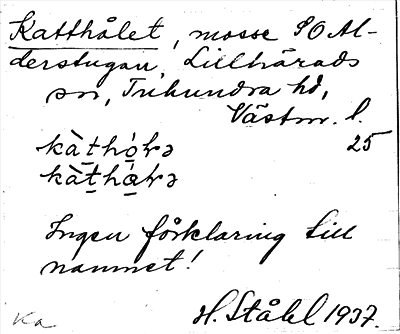 Katthålet, mosse SO Al-
derstugan, Lillhärads
sn, Tuhundra hd,
Västm. l.
25
kàt̠hó̠ɫə
kàt̠há̠ɫə
Ingen förklaring till
namnet!
Ka H. Ståhl 1937.